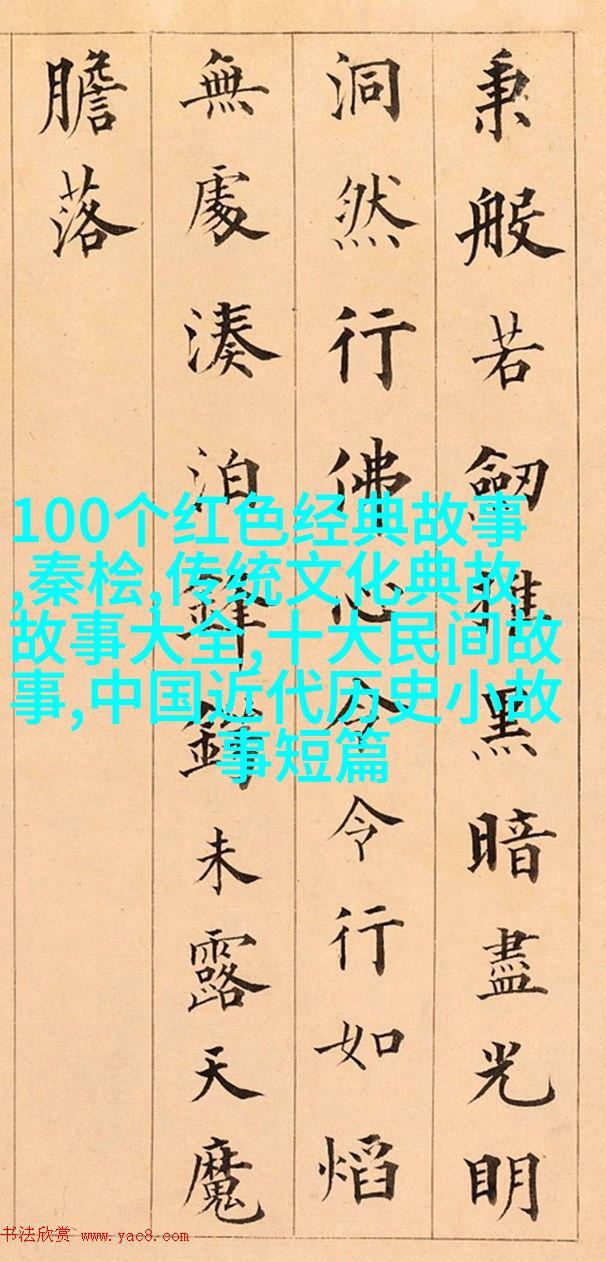 秉般若劔摧黑暗盡光明
洞然行佛心令令行如熖
無處湊泊鋒未露天魔
膽落
100个红色经典故事
,秦桧,传统文化典故
故事大全,十大民间故
事,中国近代历史小故
事短篇
书法欣赏 www.yac8.com